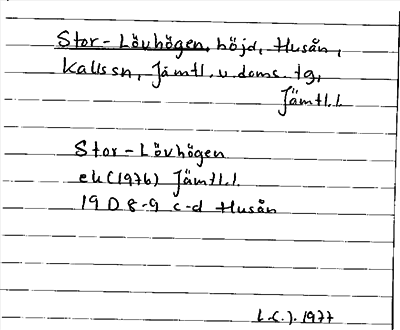 Stor-Lövhögen, höjd, Husån,
Kallssn, Jämtl. v. doms. tg,
Jämtl.l.
Stor-Lövhögen
ek (1976) Jämtl.l.
19 D 8-9 c-d Husån
1977